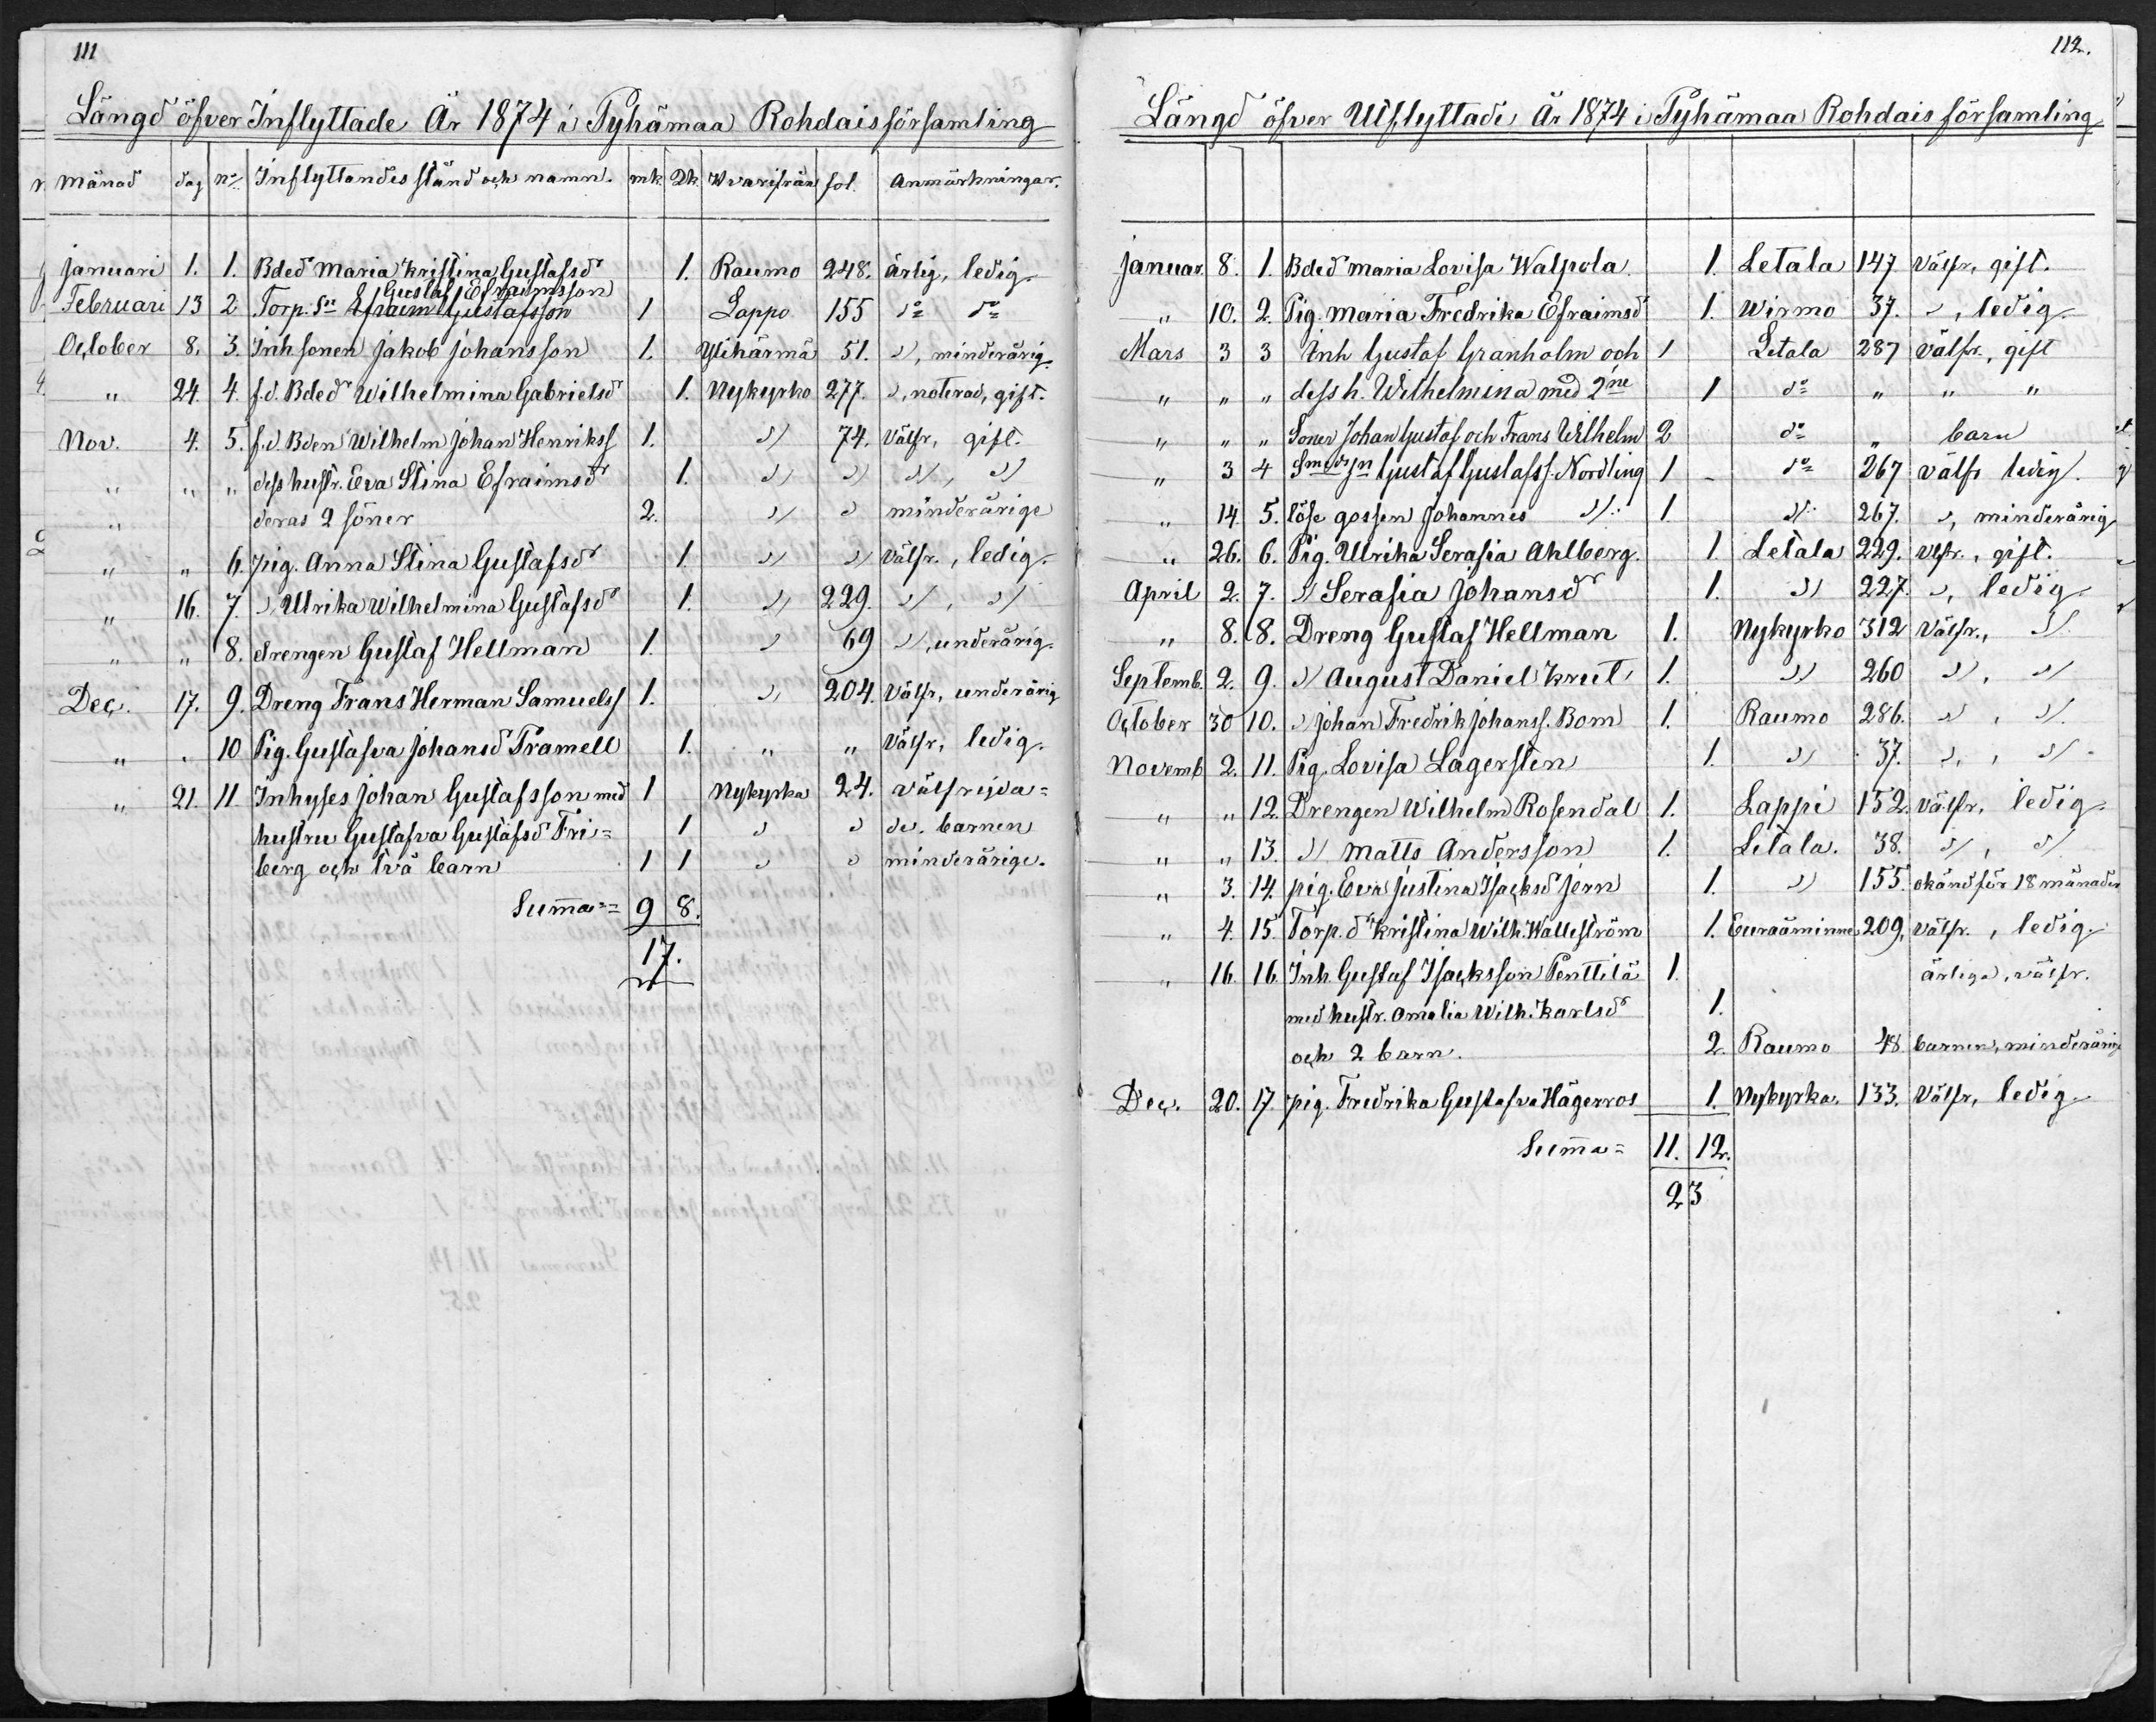 111
Längd öfver Inflyttade År 1874 i Pyhämaa Rohdais församling
månad dag nº Inflyttandes stånd och namn. mk Qk Hvarifrån fol. Anmärkningar.
Januari 1. 1. Bded Maria Kristina Gustafsd 1. Raumo 248. ärlig, ledig.
Gustaf Efraimsson
Februari 13 2 Torp. Sn Efraim Gustafsson 1 Lappo 155 dº dº
October 8. 3. Inh sonen Jakob Johansson 1. Ylihärmä 51. ", minderårig.
" 24. 4. f.d. Bded Wilhelmina Gabrielsd 1. Nykyrko 277. ", noterad, gift.
Nov. 4. 5. f.d Bden Wilhelm Johan Henrikss 1. " 74. välfr, gift.
" " " dess hustr. Eva Stina Efraimsd 1. " " ", "
" deras 2 söner 2. " " minderårige
" " 6. pig. Anna Stina Gustafsd 1. " " välfr., ledig.
" 16. 7. " Ulrika Wilhelmina Gustafsd 1. " 229. ", "
" " 8. drengen Gustaf Hellman 1. " 69 ", underårig.
Dec. 17. 9. Dreng Frans Herman Samuelss 1. " 204. välfr, underårig
" " 10 Pig. Gustafva Johansd Tramell 1. " " välfr, ledig.
" 21. 11 Inhyses Johan Gustafsson med 1 Nykyrka 24. välfrejda=
hustru Gustafva Gustafsd Fri= 1 " " de. barnen
berg och två barn 1 1 " " minderårige.
Summa= 9 8.
17.
112.
Längd öfver Utflyttade År 1874 i Pyhämaa Rohdais församling
Januar. 8. 1. Bded Maria Lovisa Walpola 1. Letala 147 välfr, gift.
" 10. 2. Pig. Maria Fredrika Efraimsd 1. Wirmo 37. ", ledig
Mars 3 3 Inh Gustaf Granholm och 1 Letala 287 välfr., gift
" " " dess h. Wilhelmina med 2ne 1 dº " " "
" " " Soner Johan Gustaf och Frans Wilhelm 2 dº " barn
" 3 4 Gustaf Gustafss. Nordling 1 - dº 267 välfr ledig.
" 14. 5. löse gossen Johannes " 1. " 267. ", minderårig
" 26. 6. Pig. Ulrika Serafia Ahlberg. 1. Letala 229. vlfr., gift.
April 2. 7. " Serafia Johansd 1. " 227. ", ledig.
" 8. 8. Dreng Gustaf Hellman 1. Nykyrko 312 välfr., "
Septemb. 2. 9. " August Daniel Krut 1. " 260 ", "
October 30 10. " Johan Fredrik Johanss. Bom 1. Raumo 286. ", "
Novemb 2. 11. Pig. Lovisa Lagersten 1. " 37. ", "
" " 12. Drengen Wilhelm Rosendal 1. Lappi 152. välfr, ledig.
" " 13. " Matts Andersson 1. Letala. 38. ", "
" 3. 14. pig. Eva Justina Isacksd Jern 1. " 155. okänd för 18 månader
" 4. 15. Torp. d Kristina Wilh. Wallström 1. Euraåminne 209, välfr., ledig.
" 16. 16. Inh Gustaf Isacksson Penttilä 1. ärliga, välfr.
med hustr. Amalia Wilh. Karlsd 1.
och 2 barn. 2. Raumo 48 barnen, minderårige
Dec. 20. 17 pig. Fredrika Gustafva Hägerros 1. Nykyrka. 133. välfr, ledig.
Summa= 11. 12.
23